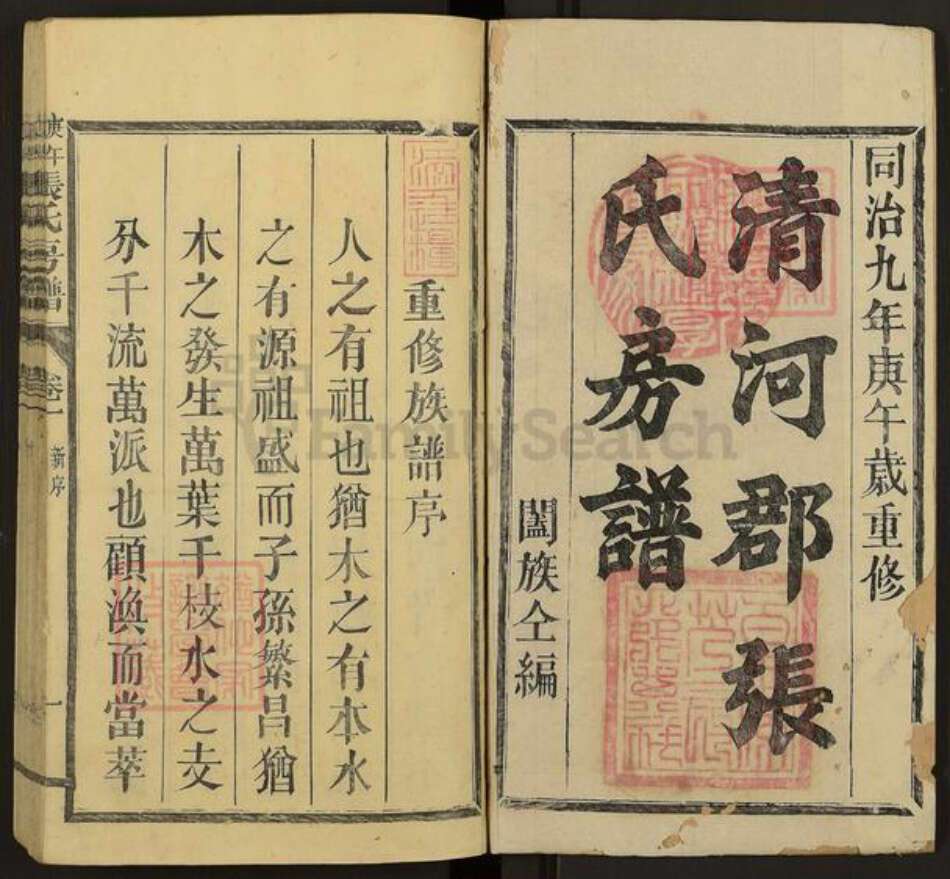 同治九年庚午歲重修
清河郡張
氏房譜
闔族仝編
重修族譜序
人之有祖也猶木之有本水
之有源祖盛而子孫繁昌猶
木之發生萬葉千枝水之支
分千流萬派也顧渙而當萃
庚午張氏房譜
卷一
新序
一
FamilySearch